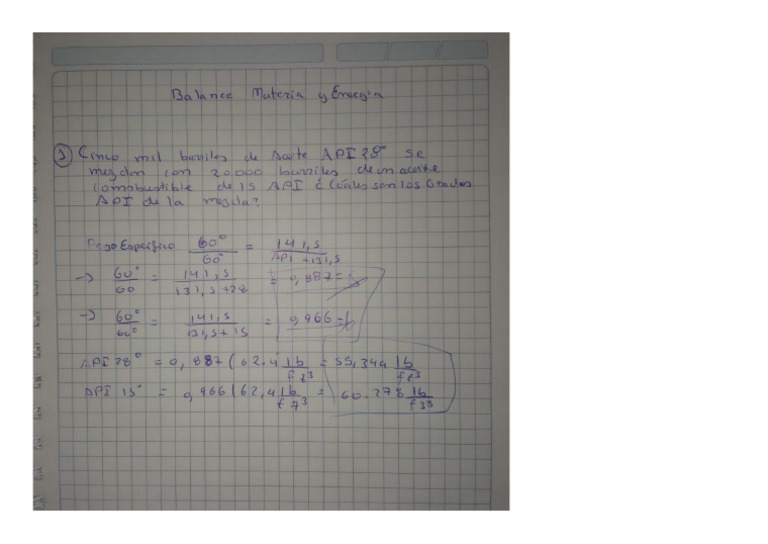 Balance Materia y Energia
1 Cinco mil barriles de Aceite API 28° se
mezclan con 20.000 barriles de un aceite
Combustible de 15 API ¿Cúales son los Grados
API de la mezcla?
Peso Especifico 60°/60° = 141,5/API + 131,5
→ 60°/60 = 141,5/131,5+28 = 0,887
→ 60°/60° = 141,5/131,5+15 = 0,966
API 28° = 0,887 (62.4 lb/ft3 = 55,344 lb/ft3
API 15° = 0,966 (62,4 lb/ft3 = 60.278 lb/ft3